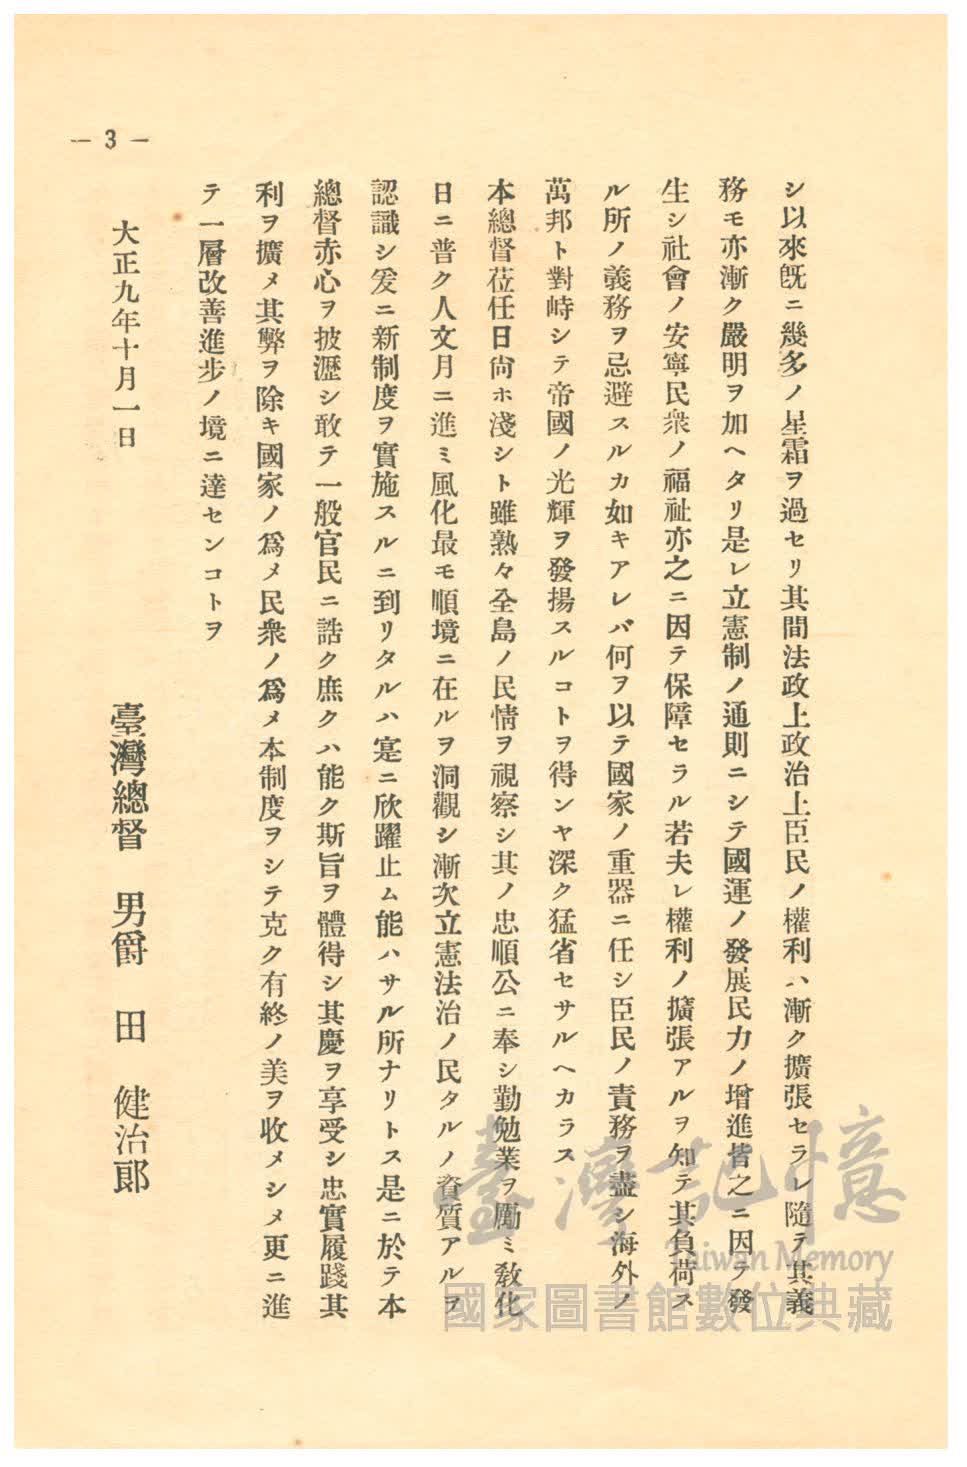 — 3 —
シ以來旣ニ幾多ノ星霜ヲ過セリ其間法政上政治上臣民ノ權利ハ漸ク擴張セラレ隨テ其義
務モ亦漸ク嚴明ヲ加ヘタリ是レ立憲制ノ通則ニシテ國運ノ發展民力ノ增進皆之ニ因ラ發
生シ社會ノ安寧民衆ノ福祉亦之ニ因テ保障セラル若夫レ權利ノ擴張アルヲ知テ其負荷ス
ル所ノ義務ヲ忌避スルカ如キアレバ何ヲ以テ國家ノ重器ニ任シ臣民ノ責務ヲ盡シ海外ノ
萬邦ト對峙シテ帝國ノ光輝ヲ發揚スルコトヲ得ンヤ深ク猛省セサルヘカラス
本總督莅任日尙ホ淺シト雖熟々全島ノ民情ヲ視察シ其ノ忠順公ニ奉シ勤勉業ヲ勵ミ敎化
日ニ普ク人文月ニ進ミ風化最モ順境ニ在ルヲ洞觀シ漸次立憲法治ノ民タルノ資質アルヲ
認識シ爰ニ新制度ヲ實施スルニ到リタルハ寔ニ欣躍止ム能ハサル所ナリトス是ニ於テ本
總督赤心ヲ披瀝シ敢テ一般官民ニ誥ク庶クハ能ク斯旨ヲ體得シ其慶ヲ享受シ忠實履踐其
利ヲ擴メ其弊ヲ除キ國家ノ爲メ民衆ノ爲メ本制度ヲシテ克ク有終ノ美ヲ收メシメ更ニ進
テ一層改善進步ノ境ニ達センコトヲ
大正九年十月一日
臺灣總督 男爵 田 健治郞
臺灣記憶
Taiwan Memory
國家圖書館數位典藏